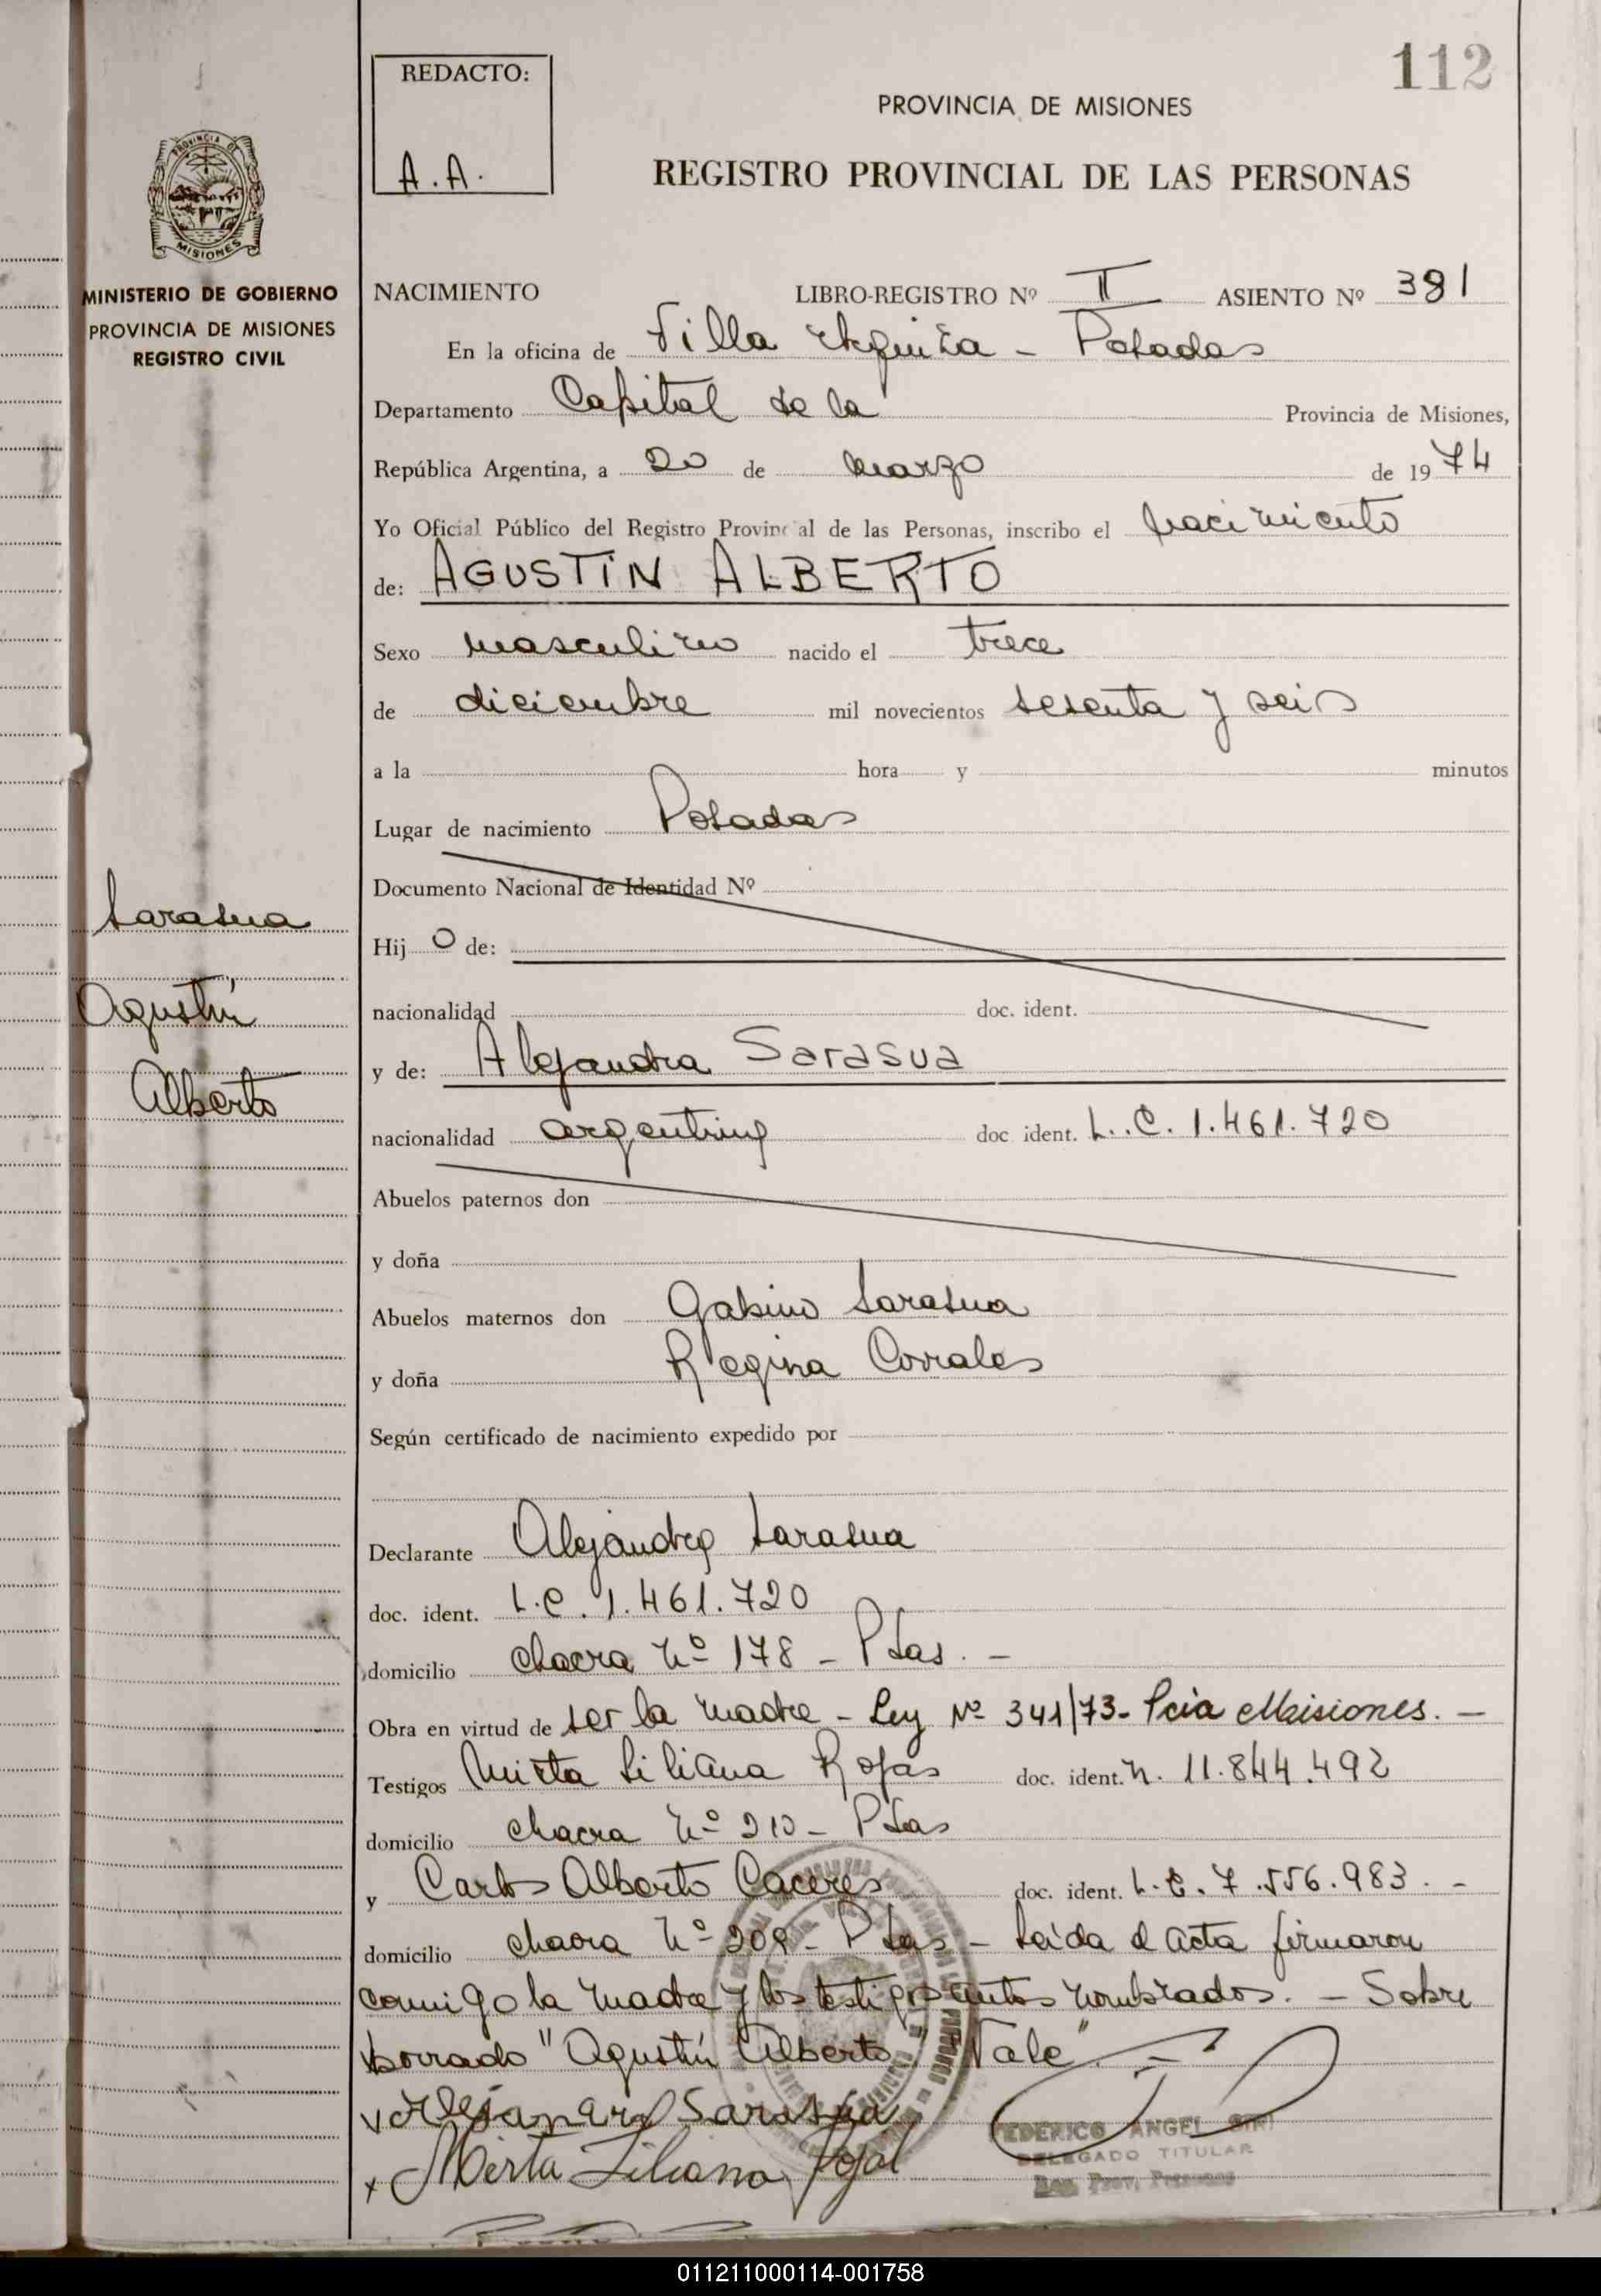 112
REDACTO:
A.A.
PROVINCIA DE MISIONES
REGISTRO PROVINCIAL DE LAS PERSONAS
PROVINCIA DE
MISIONES
MINISTERIO DE GOBIERNO
PROVINCIA DE MISIONES
REGISTRO CIVIL
NACIMIENTO LIBRO-REGISTRO Nº II ASIENTO Nº 391
En la oficina de Villa Urquiza - Posadas
Departamento Capital de la Provincia de Misiones,
República Argentina, a 20 de marzo de 1974
Yo Oficial Público del Registro Provincial de las Personas, inscribo el nacimiento
de: AGUSTÍN ALBERTO
Sexo masculino nacido el trece
de diciembre mil novecientos sesenta y seis
a la hora y minutos
Lugar de nacimiento Posadas
Documento Nacional de Identidad Nº
Hij o de:
nacionalidad doc. ident.
y de: Alejandra Sarasua
nacionalidad argentina doc. ident. L.C. 1.461.720
Abuelos paternos don
y doña
Abuelos maternos don Gabino Sarasua
y doña Regina Corrales
Según certificado de nacimiento expedido por
Declarante Alejandra Sarasua
doc. ident. L.C. 1.461.720
domicilio chacra Nº 178 - Pdas. -
Obra en virtud de ser la madre - Ley Nº 341/73 - Pcia Misiones. -
Testigos Mirta Liliana Rojas doc. ident. N. 11.844.492
domicilio chacra Nº 210 - Pdas
y Carlos Alberto Caceres doc. ident. L.E. 7.556.983. -
domicilio chacra Nº 209 - Pdas - Leida el acta firmaron
conmigo la madre y los testigos antes nombrados. - Sobre
borrado "Agustín Alberto" Vale". -
Sarasua
Agustín
Alberto
Alejandra Sarasua
Mirta Liliana Rojas
FEDERICO ANGEL
DELEGADO TITULAR
Reg. Prov. Personas
011211000114-001758